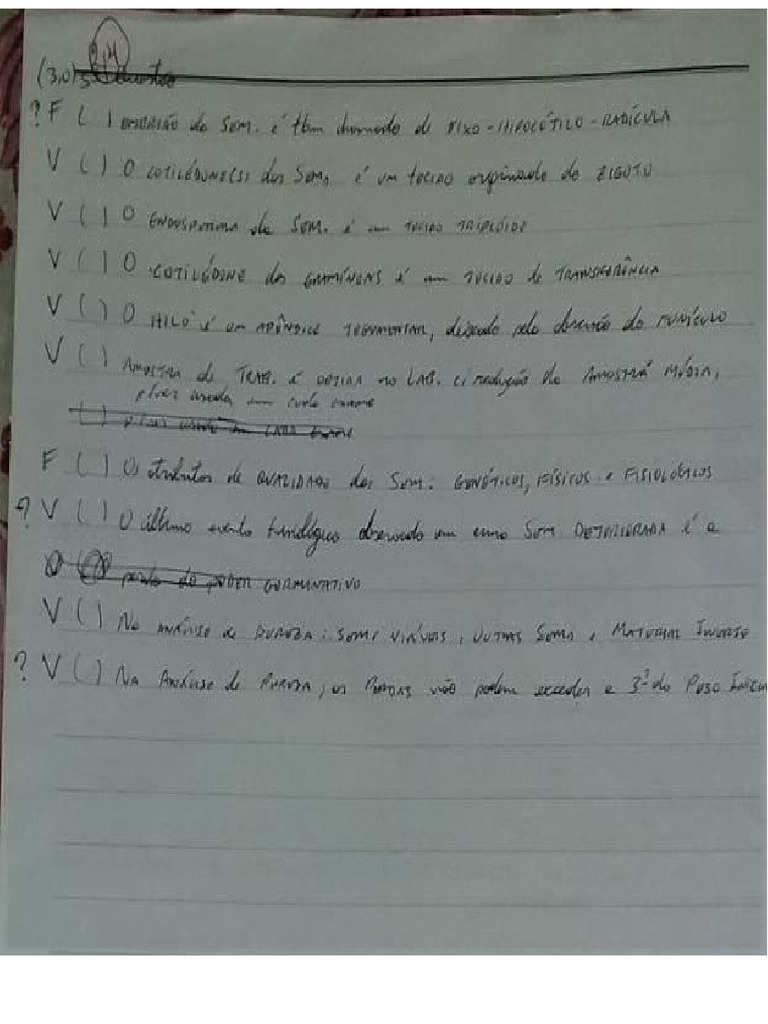 (3,0) 5ª Questão
? F ( ) embrião da Sem. é tbm chamado de EIXO-HIPOCÓTILO-RADÍCULA
V ( ) O COTILÉDONE(S) das Sem. é um tecido originado do ZIGOTO
V ( ) O ENDOSPERMA da Sem. é um TECIDO TRIPLÓIDE
V ( ) O COTILÉDONE das GRAMÍNEAS é um TECIDO de TRANSFERÊNCIA
V ( ) O HILO é um APÊNDICE TEGUMENTAR, deixado pelo do FUNÍCULO
V ( ) AMOSTRA de TRAB. é OBTIDA no LAB. c/ redução da AMOSTRA MÉDIA,
p/ser usada em cada exame
( ) p/ser usada em CADA EXAME
F ( ) Os atributos de QUALIDADE das Sem: GENÉTICOS, FÍSICOS e FISIOLÓGICOS
? V ( ) O último evento observado em uma Sem DETERIORADA é a
perda do PODER GERMINATIVO
V ( ) Na ANÁLISE de PUREZA: Sem, OUTRAS Sem, MATERIAL INERTE
? V ( ) NA ANÁLISE de PUREZA, as PERDAS não podem exceder a do PESO